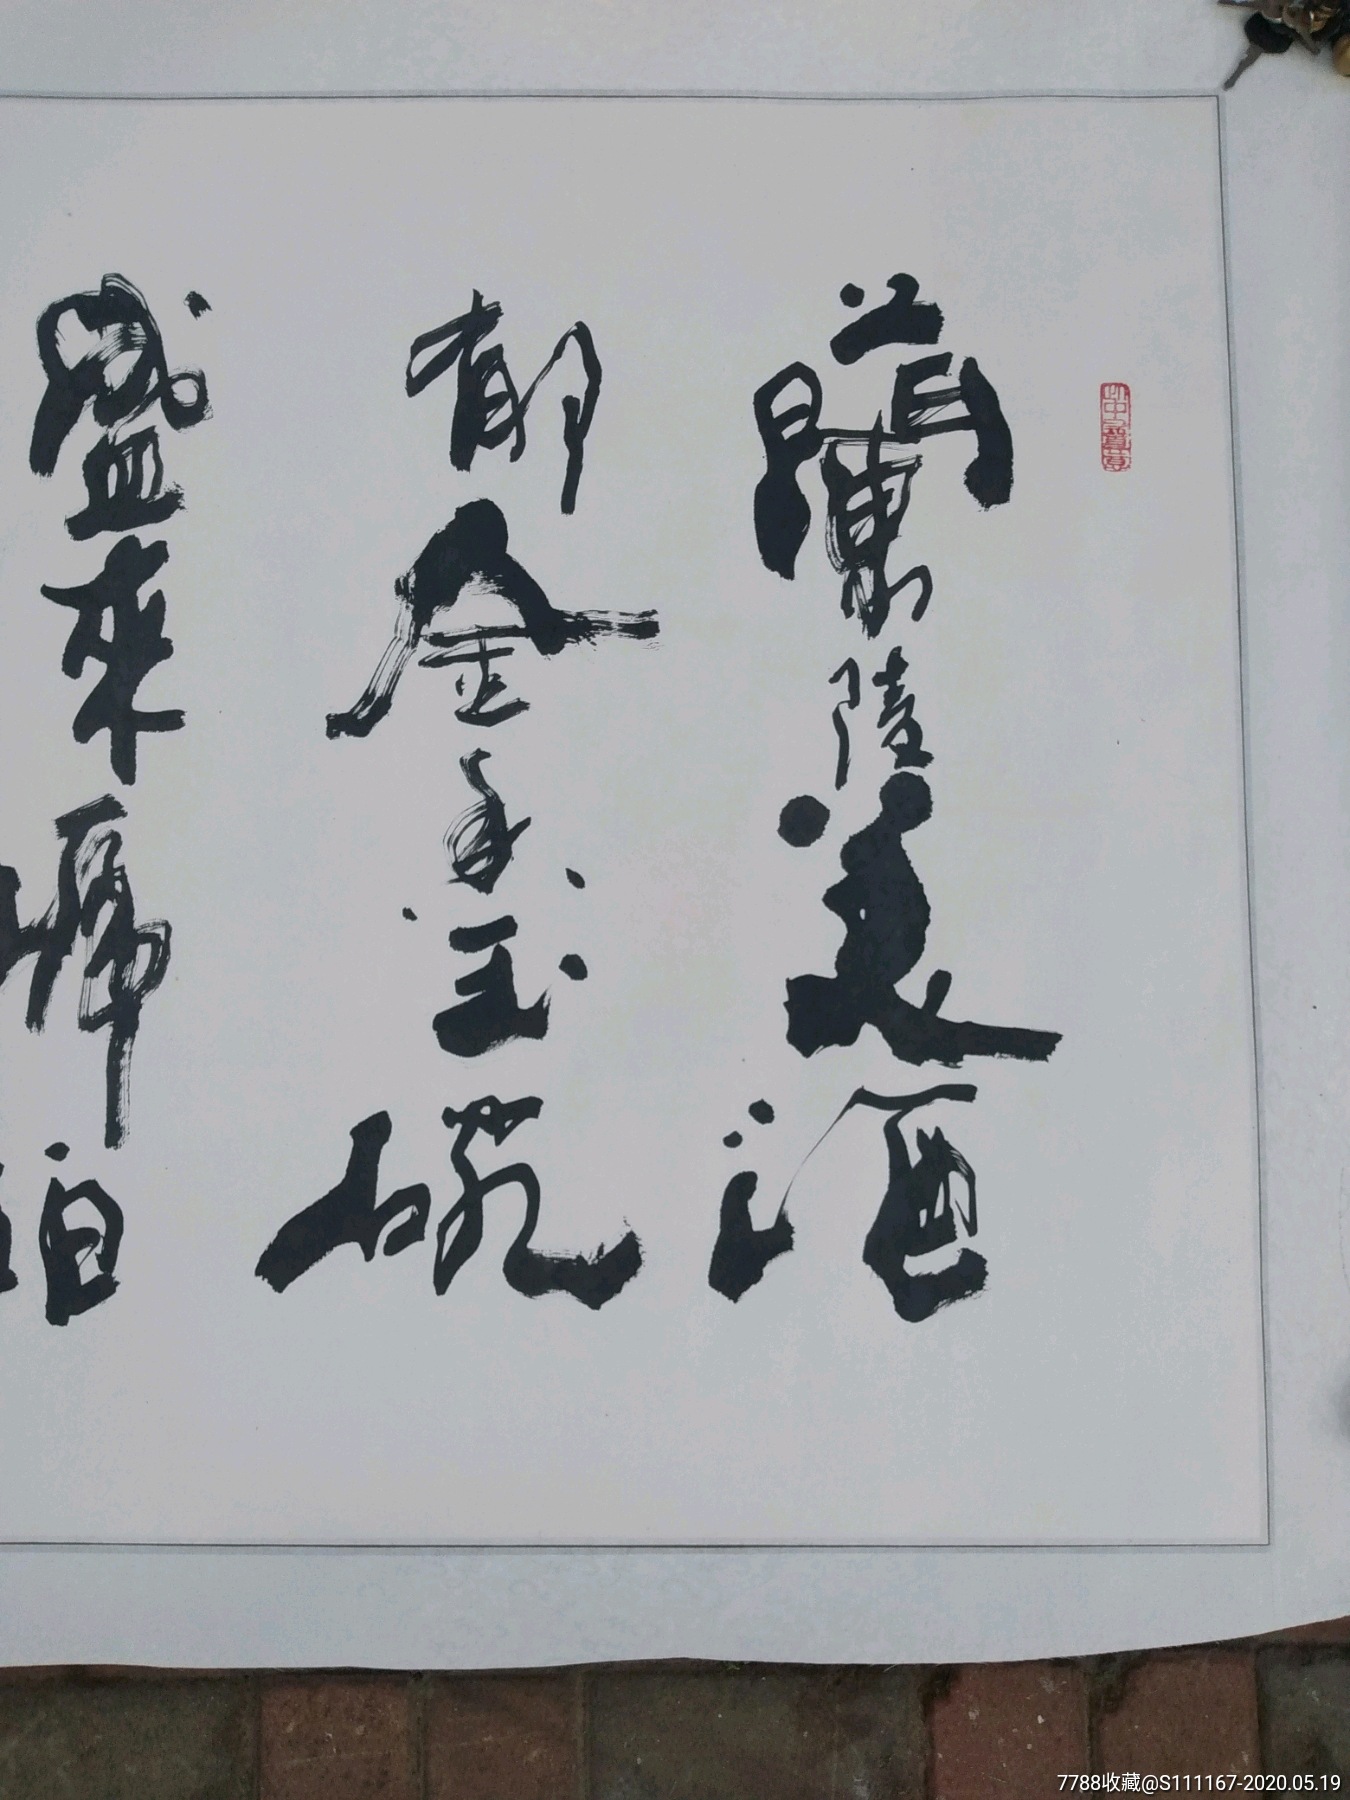 蘭陵美酒
郁金香玉碗
盛來琥珀
7788收藏@S111167-2020.05.19